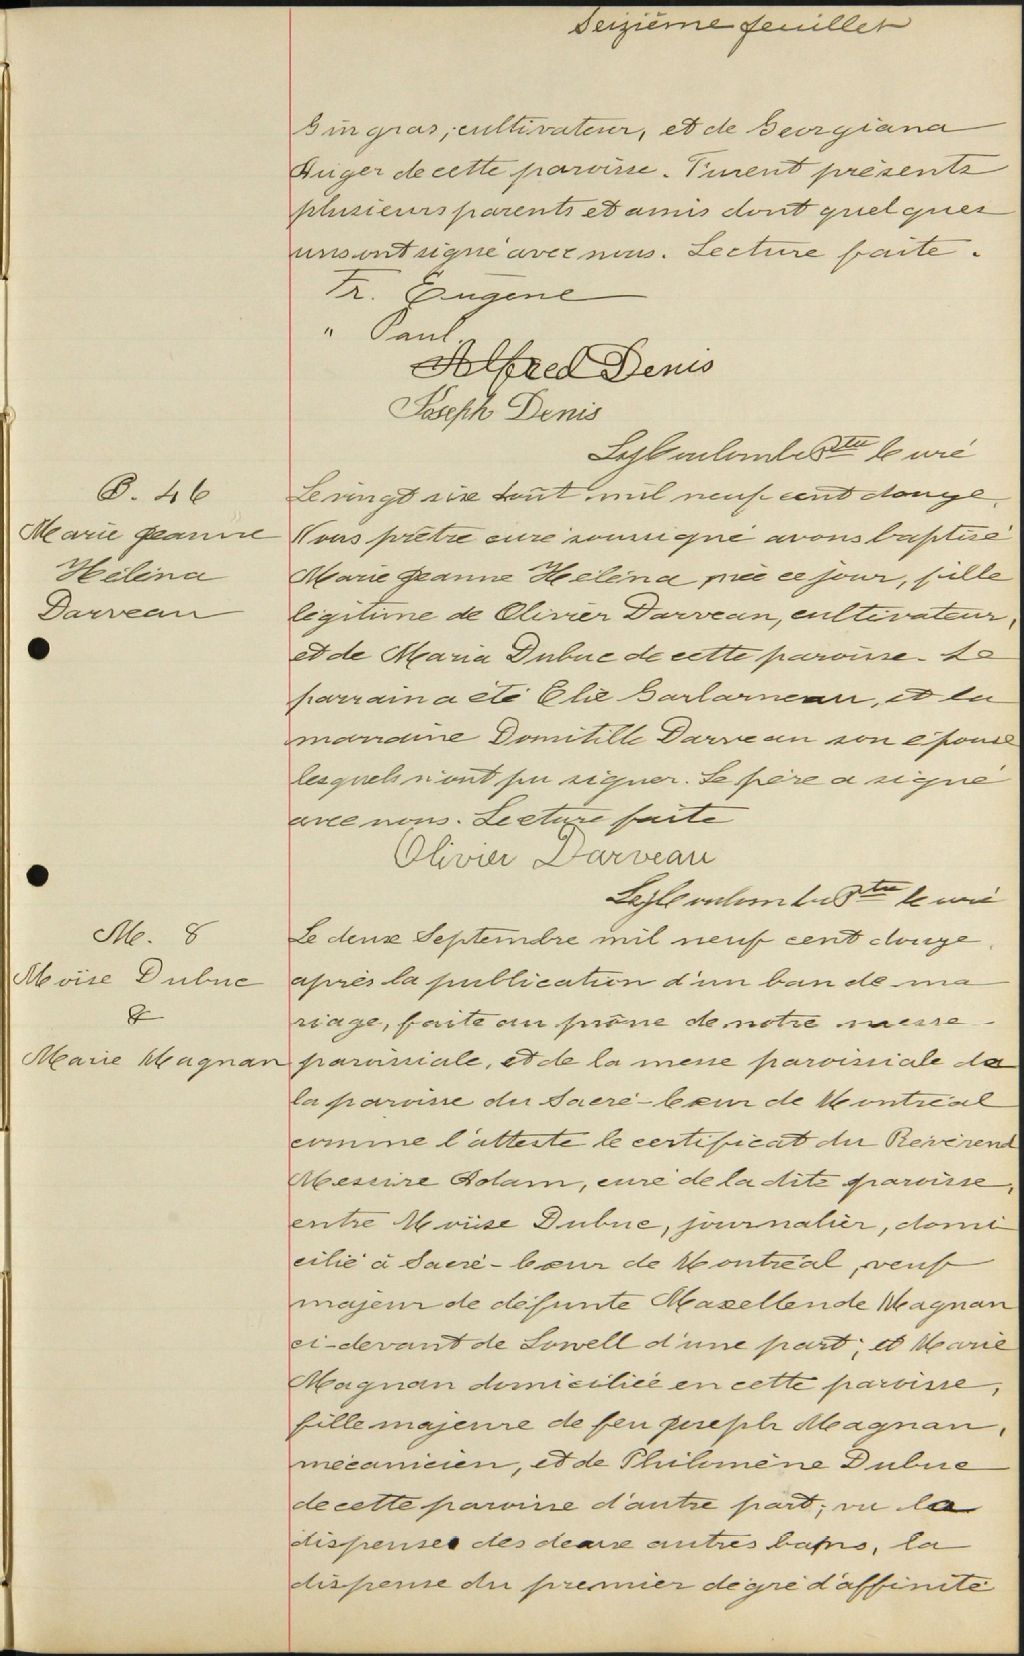 Seizième feuillet
Gingras, cultivateur, et de Georgiana
Auger de cette paroisse. Furent présents
plusieurs parents et amis dont quelques
uns ont signé avec nous. Lecture faite.
Fr. Eugène
" Paul
Alfred Denis
Joseph Denis
Coulombe Ptre Curé
B. 46
Marie Jeanne
Héléna
Darveau
Le vingt six août mil neuf cent douze,
Nous prêtre curé soussigné avons baptisé
Marie Jeanne Héléna née ce jour, fille
légitime de Olivier Darveau, cultivateur,
et de Maria Dubuc de cette paroisse. Le
parrain a été Elie Garlarneau, et la
marraine Domitille Darveau son épouse
lesquels n'ont pu signer. Le père a signé
avec nous. Lecture faite
Olivier Darveau
Coulombe Ptre Curé
M. 8
Moïse Dubuc
&
Marie Magnan
Le deux Septembre mil neuf cent douze,
après la publication d'un ban de ma
riage, faite au prône de notre messe
paroissiale, et de la messe paroissiale de
la paroisse du Sacré-Coeur de Montréal
comme l'atteste le certificat du Révérend
Messire Adam, curé de la dite paroisse,
entre Moïse Dubuc, journalier, domi
cilié à Sacré-Coeur de Montréal, veuf
majeur de défunte Maxellende Magnan
ci-devant de Lowell d'une part; et Marie
Magnan domiciliée en cette paroisse,
fille majeure de feu Joseph Magnan,
mécanicien, et de Philomène Dubuc
de cette paroisse d'autre part; vu la
dispense des deux autres bans, la
dispense du premier dégré d'affinité